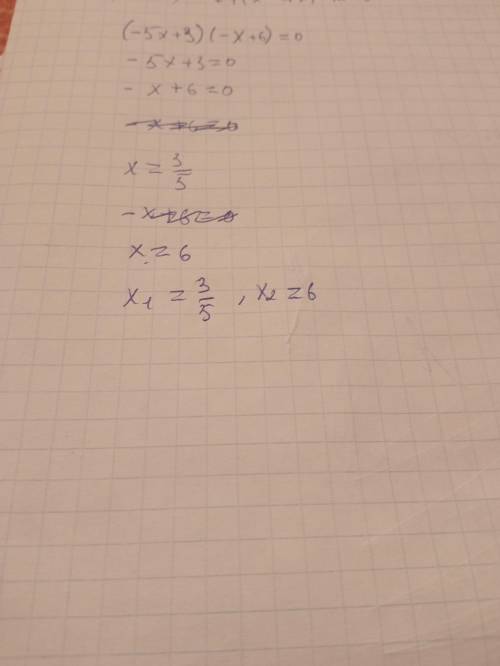 (-5x+3)(-x+6)=0
-5x+3=0
-x+6=0
-x+6=0
x=3/5
-x+6=0
x=6
x₁=3/5, x₂=6